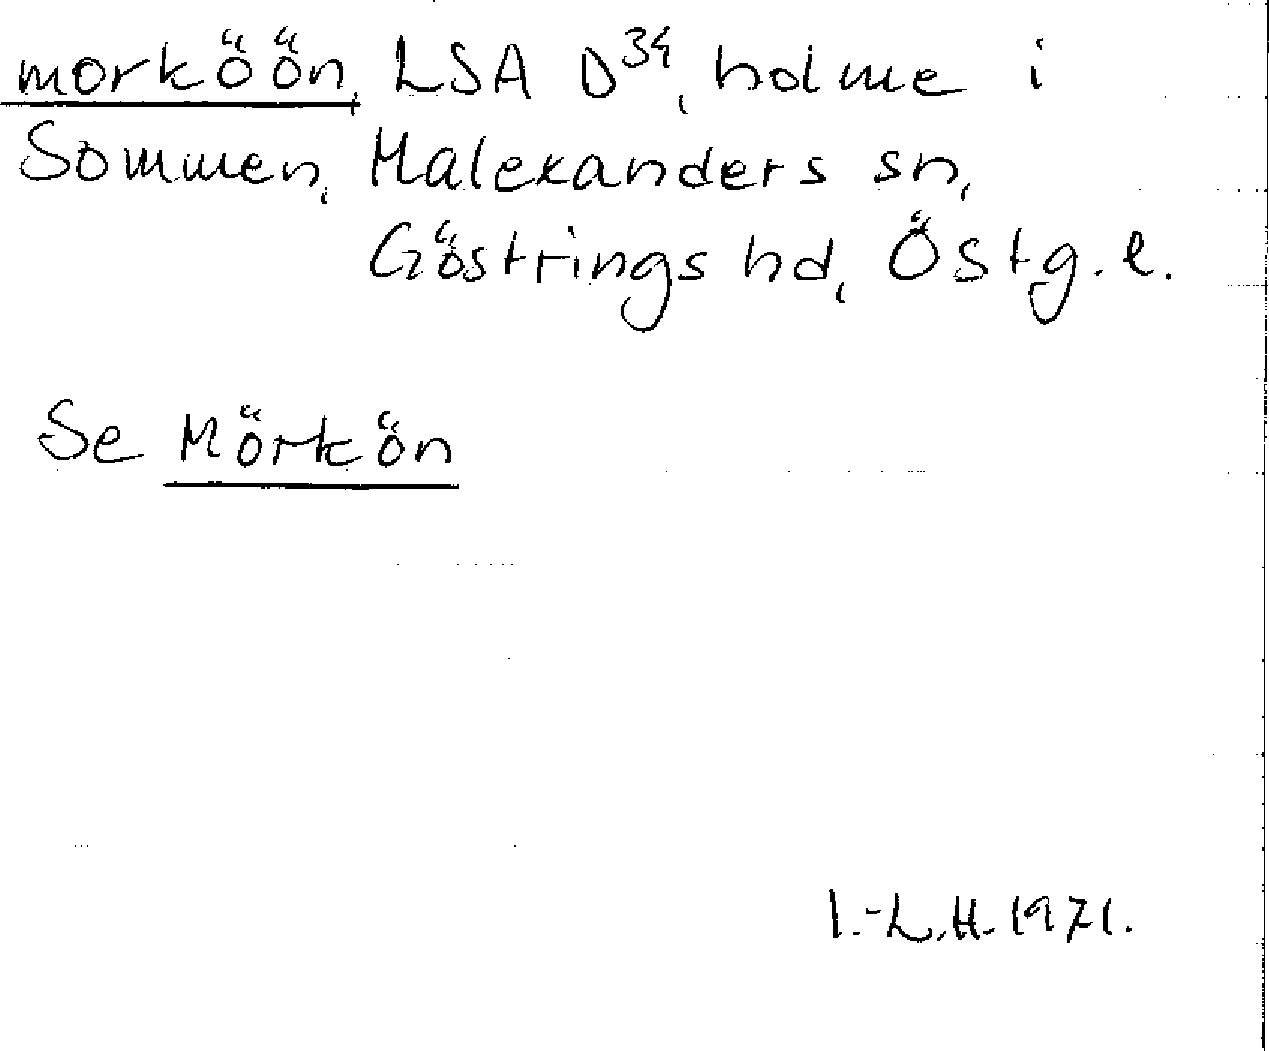 morköön, LSA D³⁴, holme i
Sommen, Malexanders sn,
Göstrings hd, Östg. l.
Se Mörkön
I.-L.H. 1971.